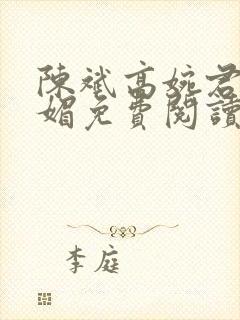 陳斌高婉君
媚免費閱讀
李庭